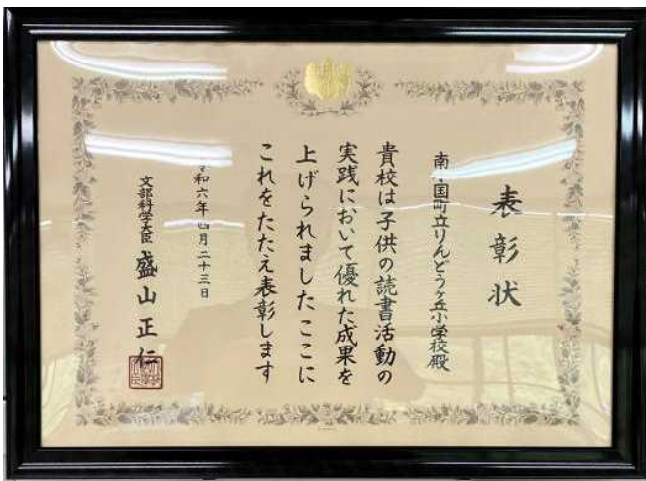 表彰状
南小国町立りんどうヶ丘小学校殿
貴校は子供の読書活動の
実践において優れた成果を
上げられましたここに
これをたたえ表彰します
令和六年四月二十三日
文部科学大臣 盛山正仁